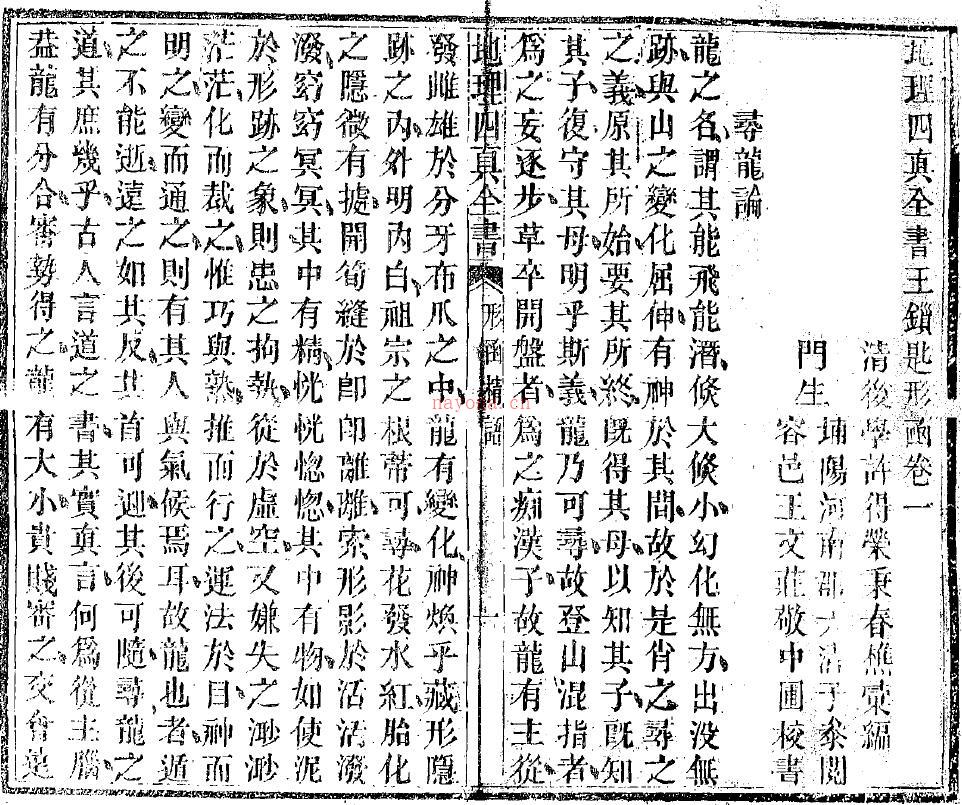 地理四真全書玉鎖匙形函卷一
清後學許得榮秉春樵彙編
埔陽河南郡 子泰閱
門生
容邑王文莊敬中圃校書
尋龍論
龍之名謂其能飛能潛倏大倏小幻化無方出没無
跡與山之變化屈伸有神於其間故於是肖之尋之
之義原其所始要其所終既得其母以知其子既知
其子復守其母明乎斯義龍乃可尋故登山混指者
爲之妄逐步草卒開盤者爲之痴漢子故龍有主從
地理四真全書 形函精語 一
發雌雄於分牙布爪之中龍有變化神煥乎藏形隱
跡之內外明內白祖宗之根蒂可尋花發水紅胎化
之隱微有據開筍縫於卽卽離離索形影於活活潑
潑窈窈冥冥其中有精恍恍惚惚其中有物如使泥
於形跡之象則患之拘執從於虛空又嫌失之渺渺
茫茫化而裁之惟巧與熟推而行之運法於目神而
明之變而通之則有其人與氣候焉耳故龍也者遁
之不能逝遠之如其反其首可迎其後可隨尋龍之
道其庶幾乎古人言道之書其實真言何爲從主腦
葢龍有分合審勢得之龍有大小貴賤審之交會是
nayona.cn